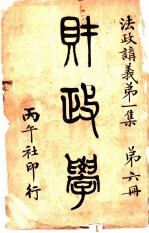 法政講義第一集　第六冊
財政學
丙午社印行